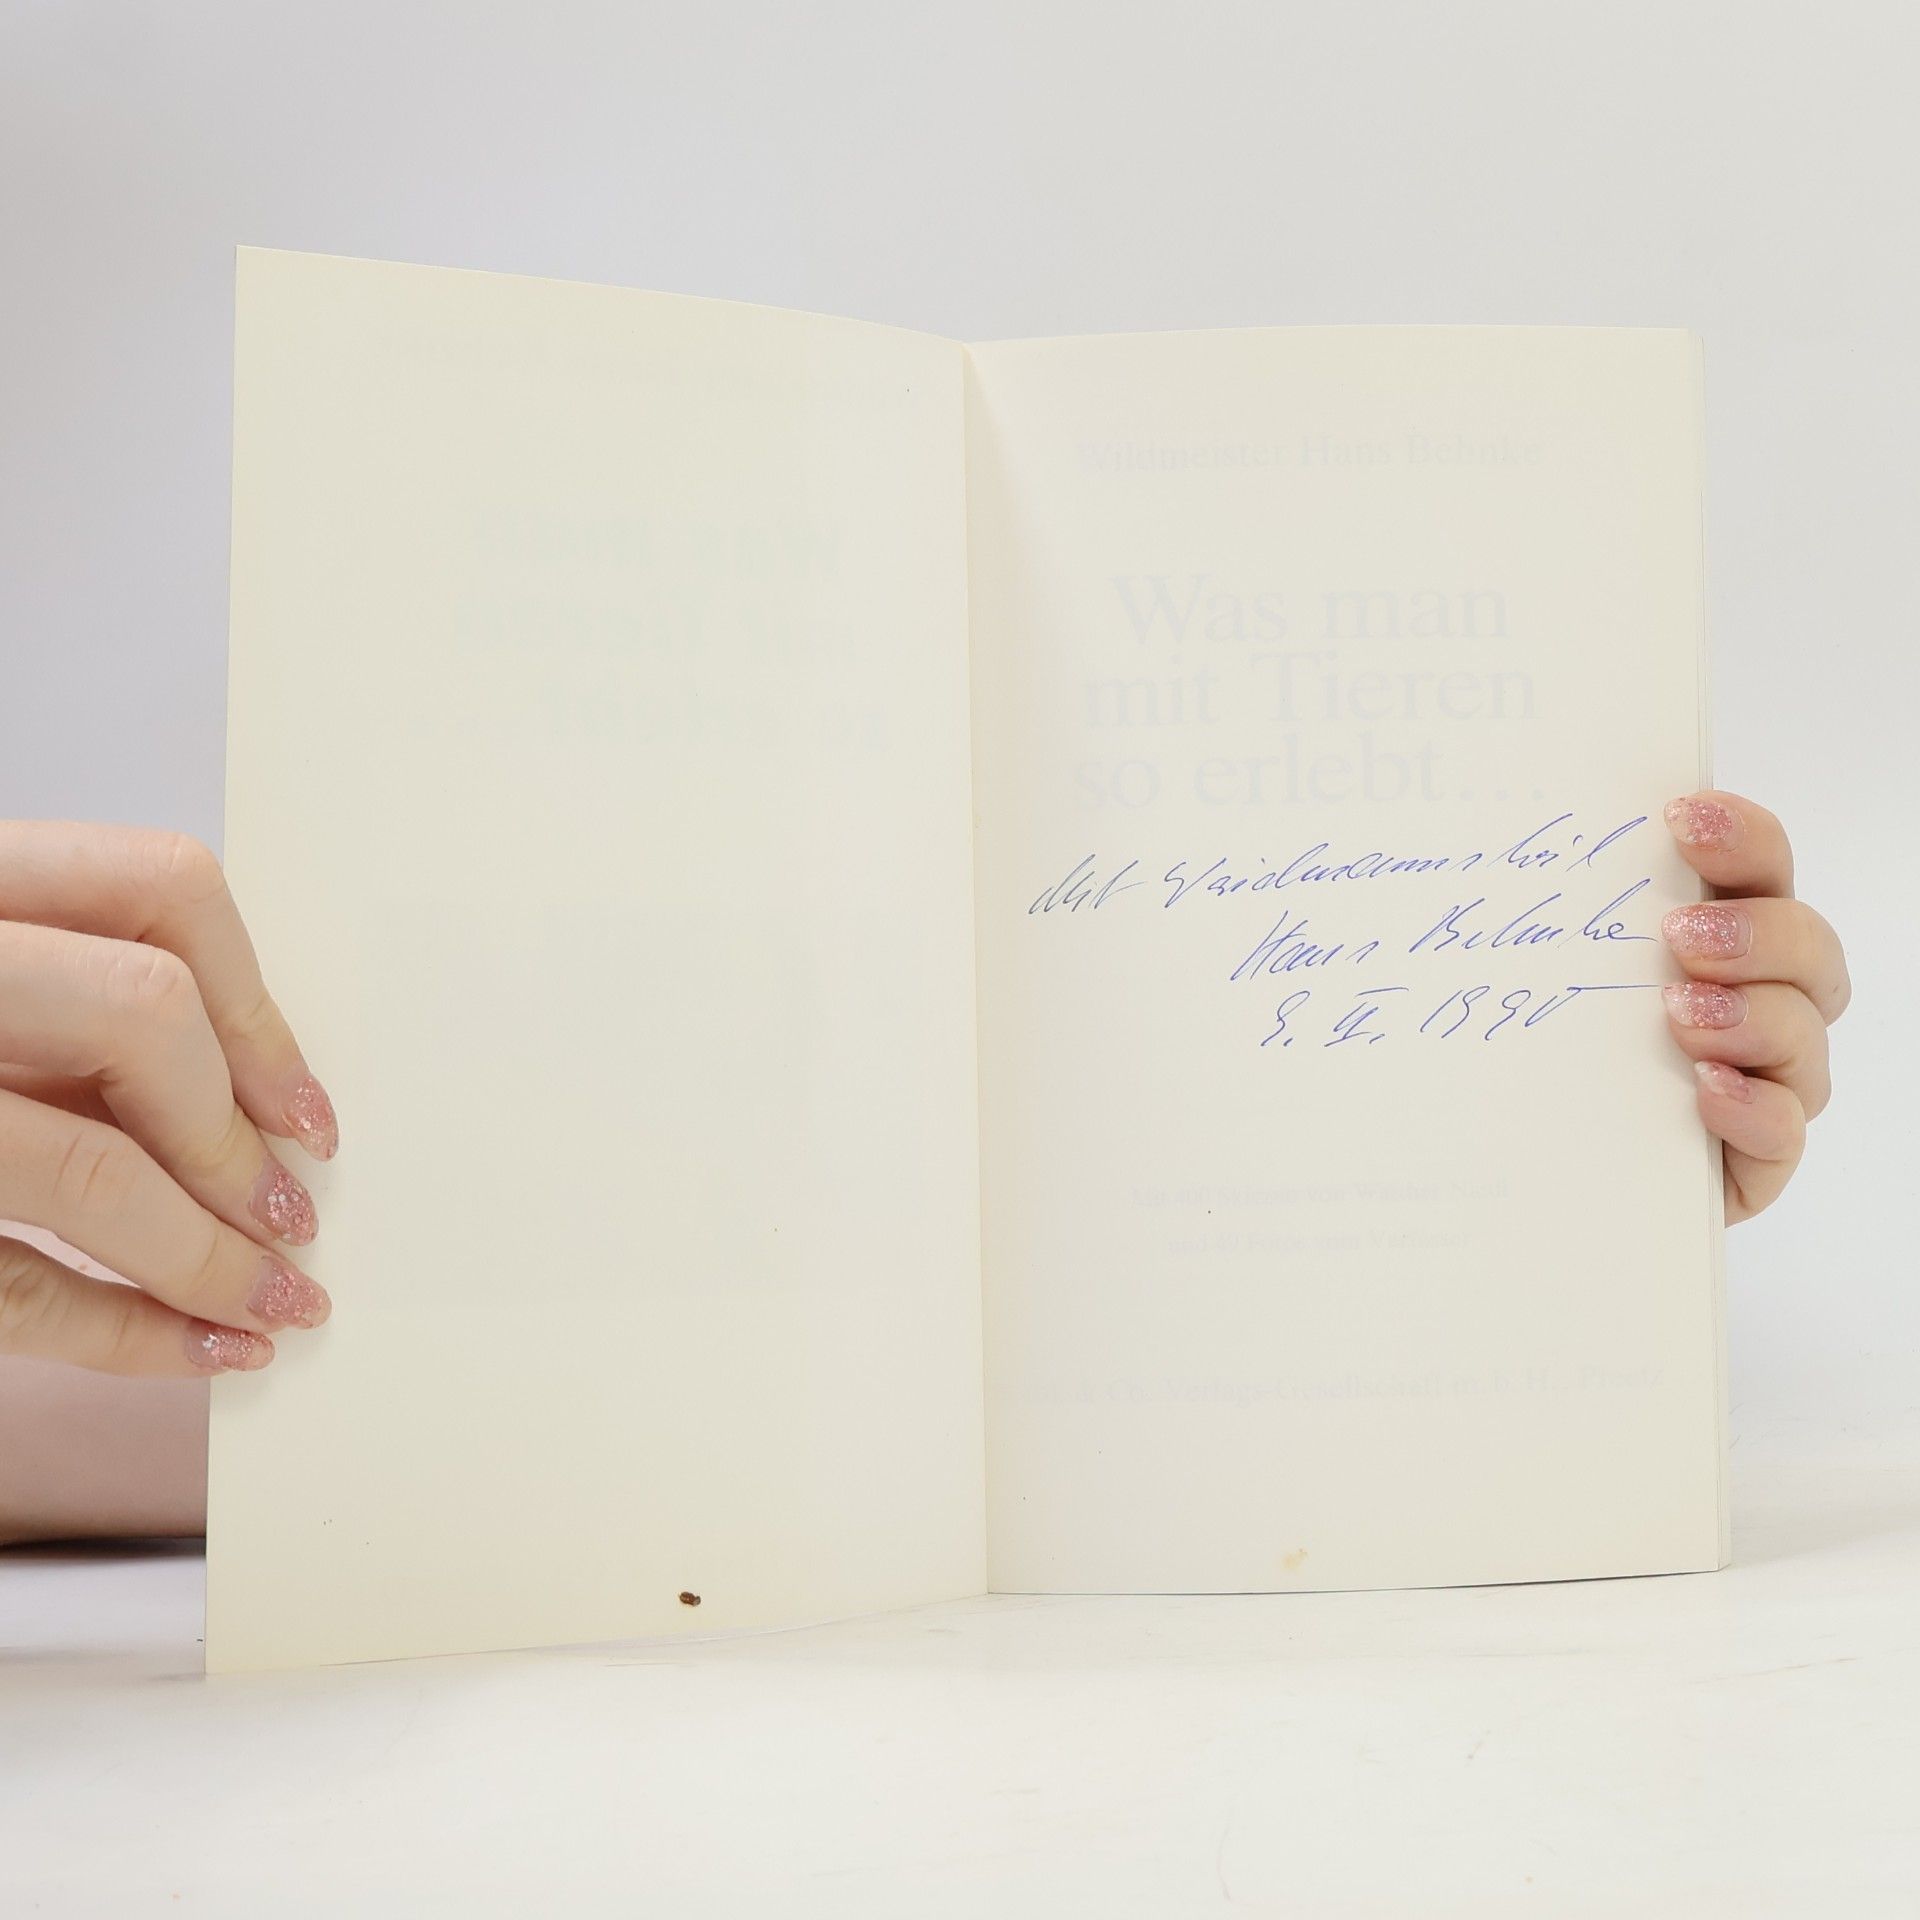 Wildmeister Hans Behnke
Was man
mit Tieren
so erlebt...
Mit Waidmannsheil
Hans Behnke
9. II. 1990
Mit 400 Skizzen von Walther Niedl
und 49 Fotos vom Verfasser
Co. Verlags-Gesellschaft m. b. H., Preetz